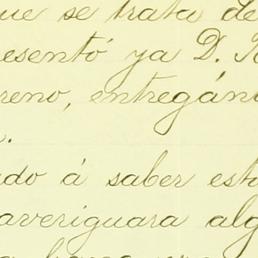 ue se trata de
esentó ya D.
reno, entregán
.
do á saber est
averiguara alg